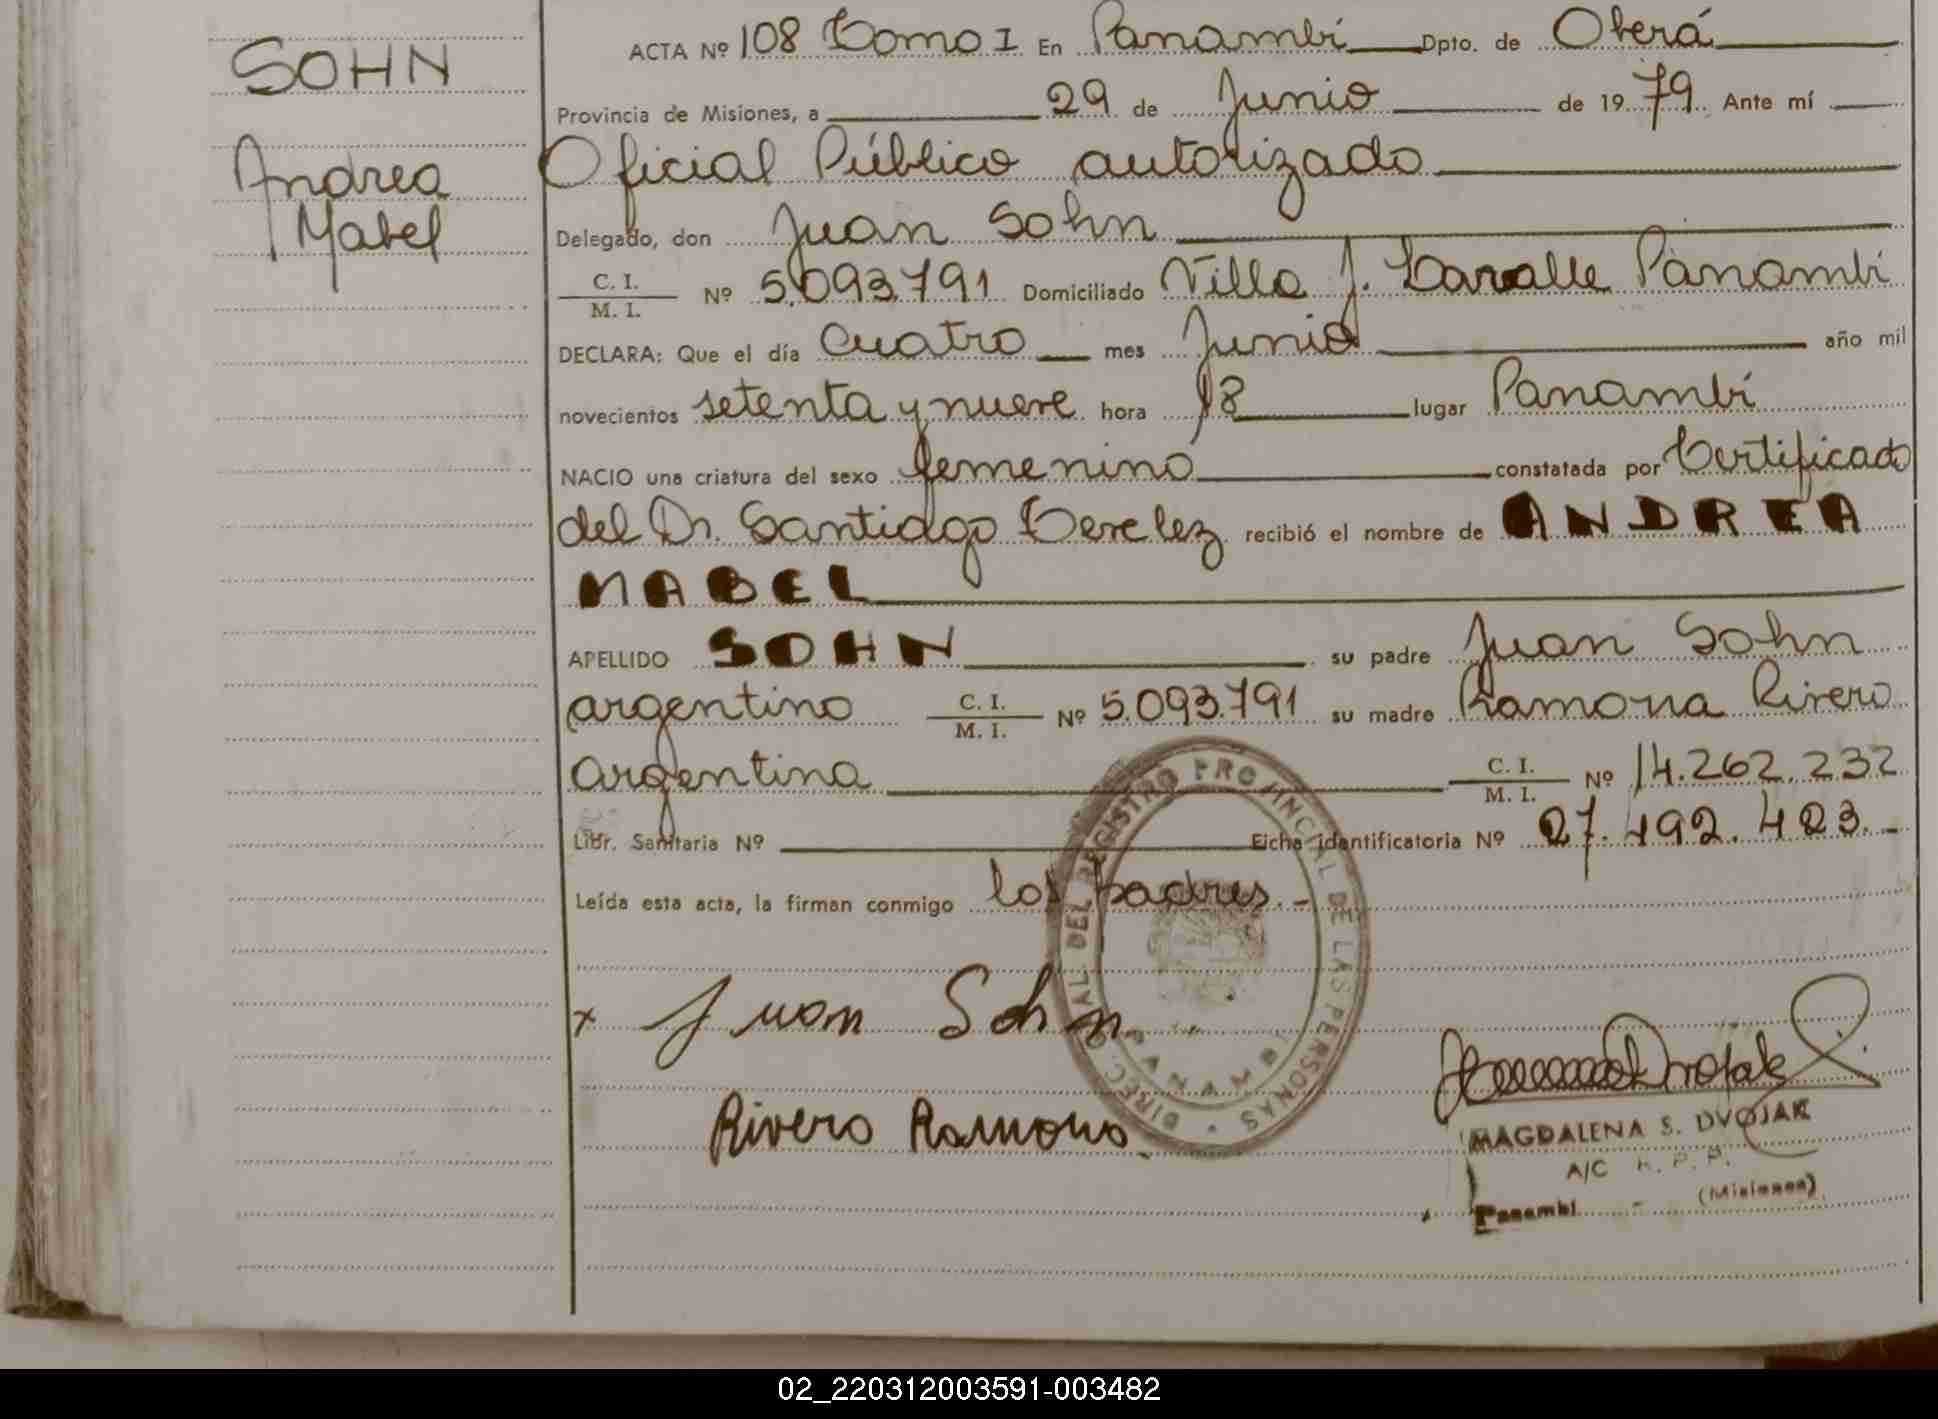 SOHN
Andrea
Mabel
ACTA Nº 108 Tomo I En Panambí Dpto. de Oberá
Provincia de Misiones, a 29 de Junio de 1979. Ante mí
Oficial Público autorizado
Delegado, don Juan Sohn
C. I. / M. I. Nº 5.093.791 Domiciliado Villa J. Lavalle Panambí
DECLARA: Que el día cuatro mes Junio año mil
novecientos setenta y nueve hora 18 lugar Panambí
NACIO una criatura del sexo femenino constatada por Certificado
del Dr. Santiago recibió el nombre de ANDREA
MABEL
APELLIDO SOHN su padre Juan Sohn
argentino C. I. / M. I. Nº 5.093.791 su madre Ramona Rivero
argentina C. I. / M. I. Nº 14.262.232
Libr. Sanitaria Nº Ficha identificatoria Nº 27.492.423.-
Leída esta acta, la firman conmigo los padres.-
x Juan Sohn
Rivero Ramona
DIREC. GRAL DEL REGISTRO PROVINCIAL DE LAS PERSONAS
PANAMBI
MAGDALENA S. DVOJAK
A/C R. P. P.
Panambí - (Misiones)
02_220312003591-003482